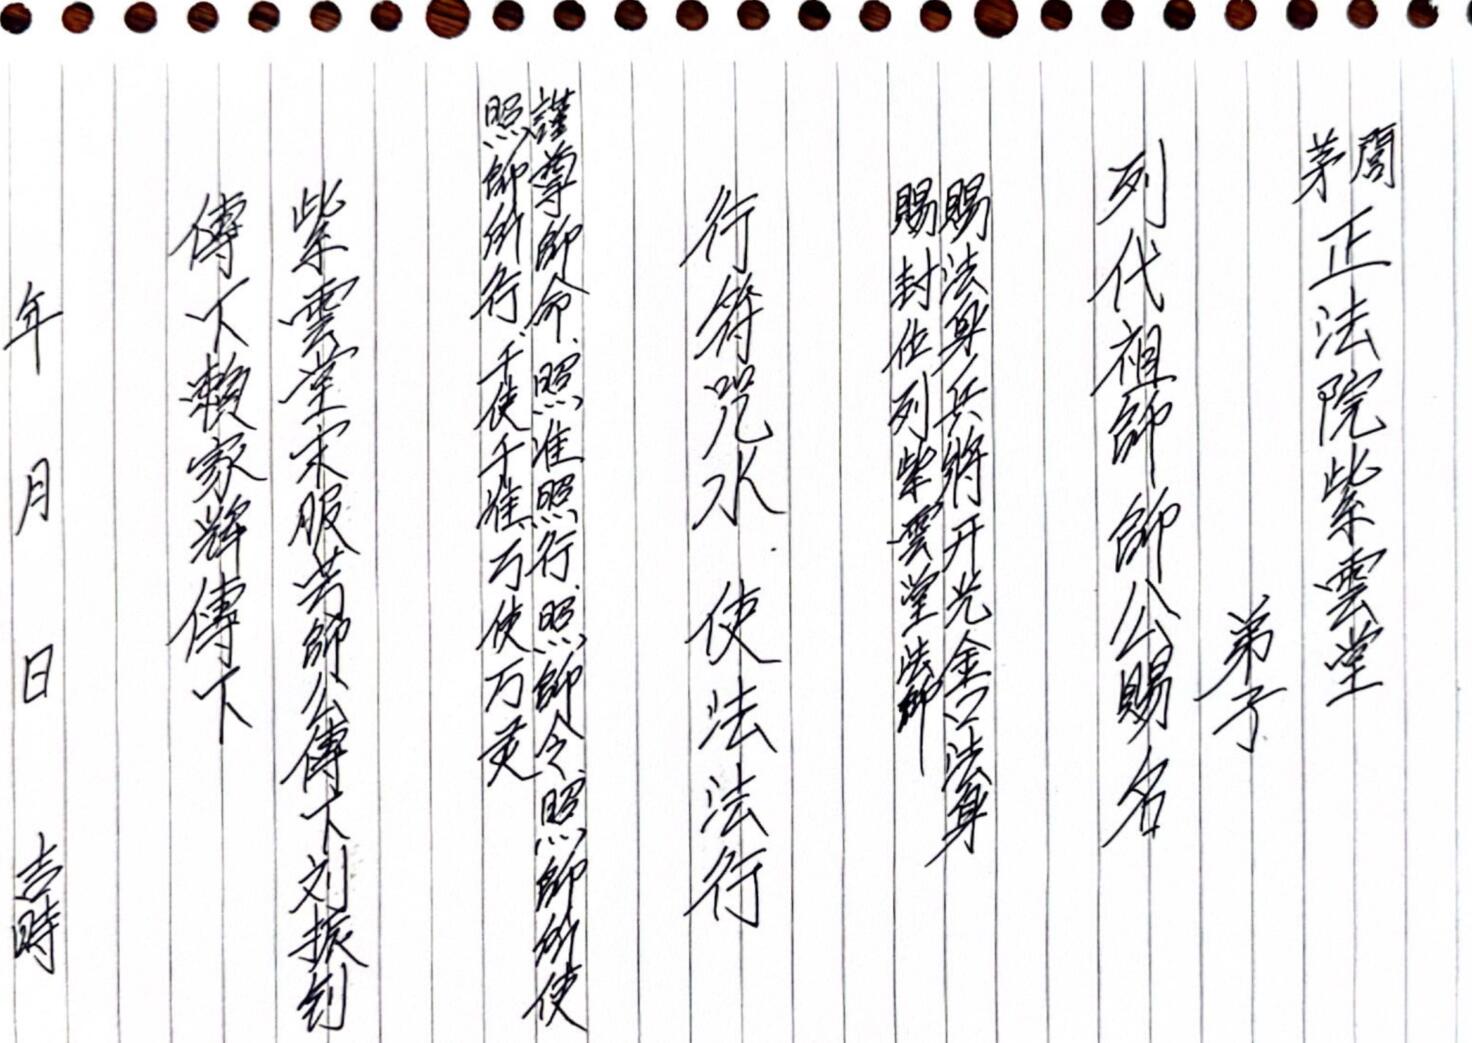 閭茅正法院紫雲堂
弟子
列代祖師 師公賜名
賜法身兵將开光金口法身
賜封位列紫雲堂柴師
行符咒水.使法法行
謹尊師命.照准照行.照師令.照師所使
照師所行.千使千准万使万灵
紫雲堂宋服芳師公傳下刘振钊
傳下賴家輝傳下
年 月 日 吉時